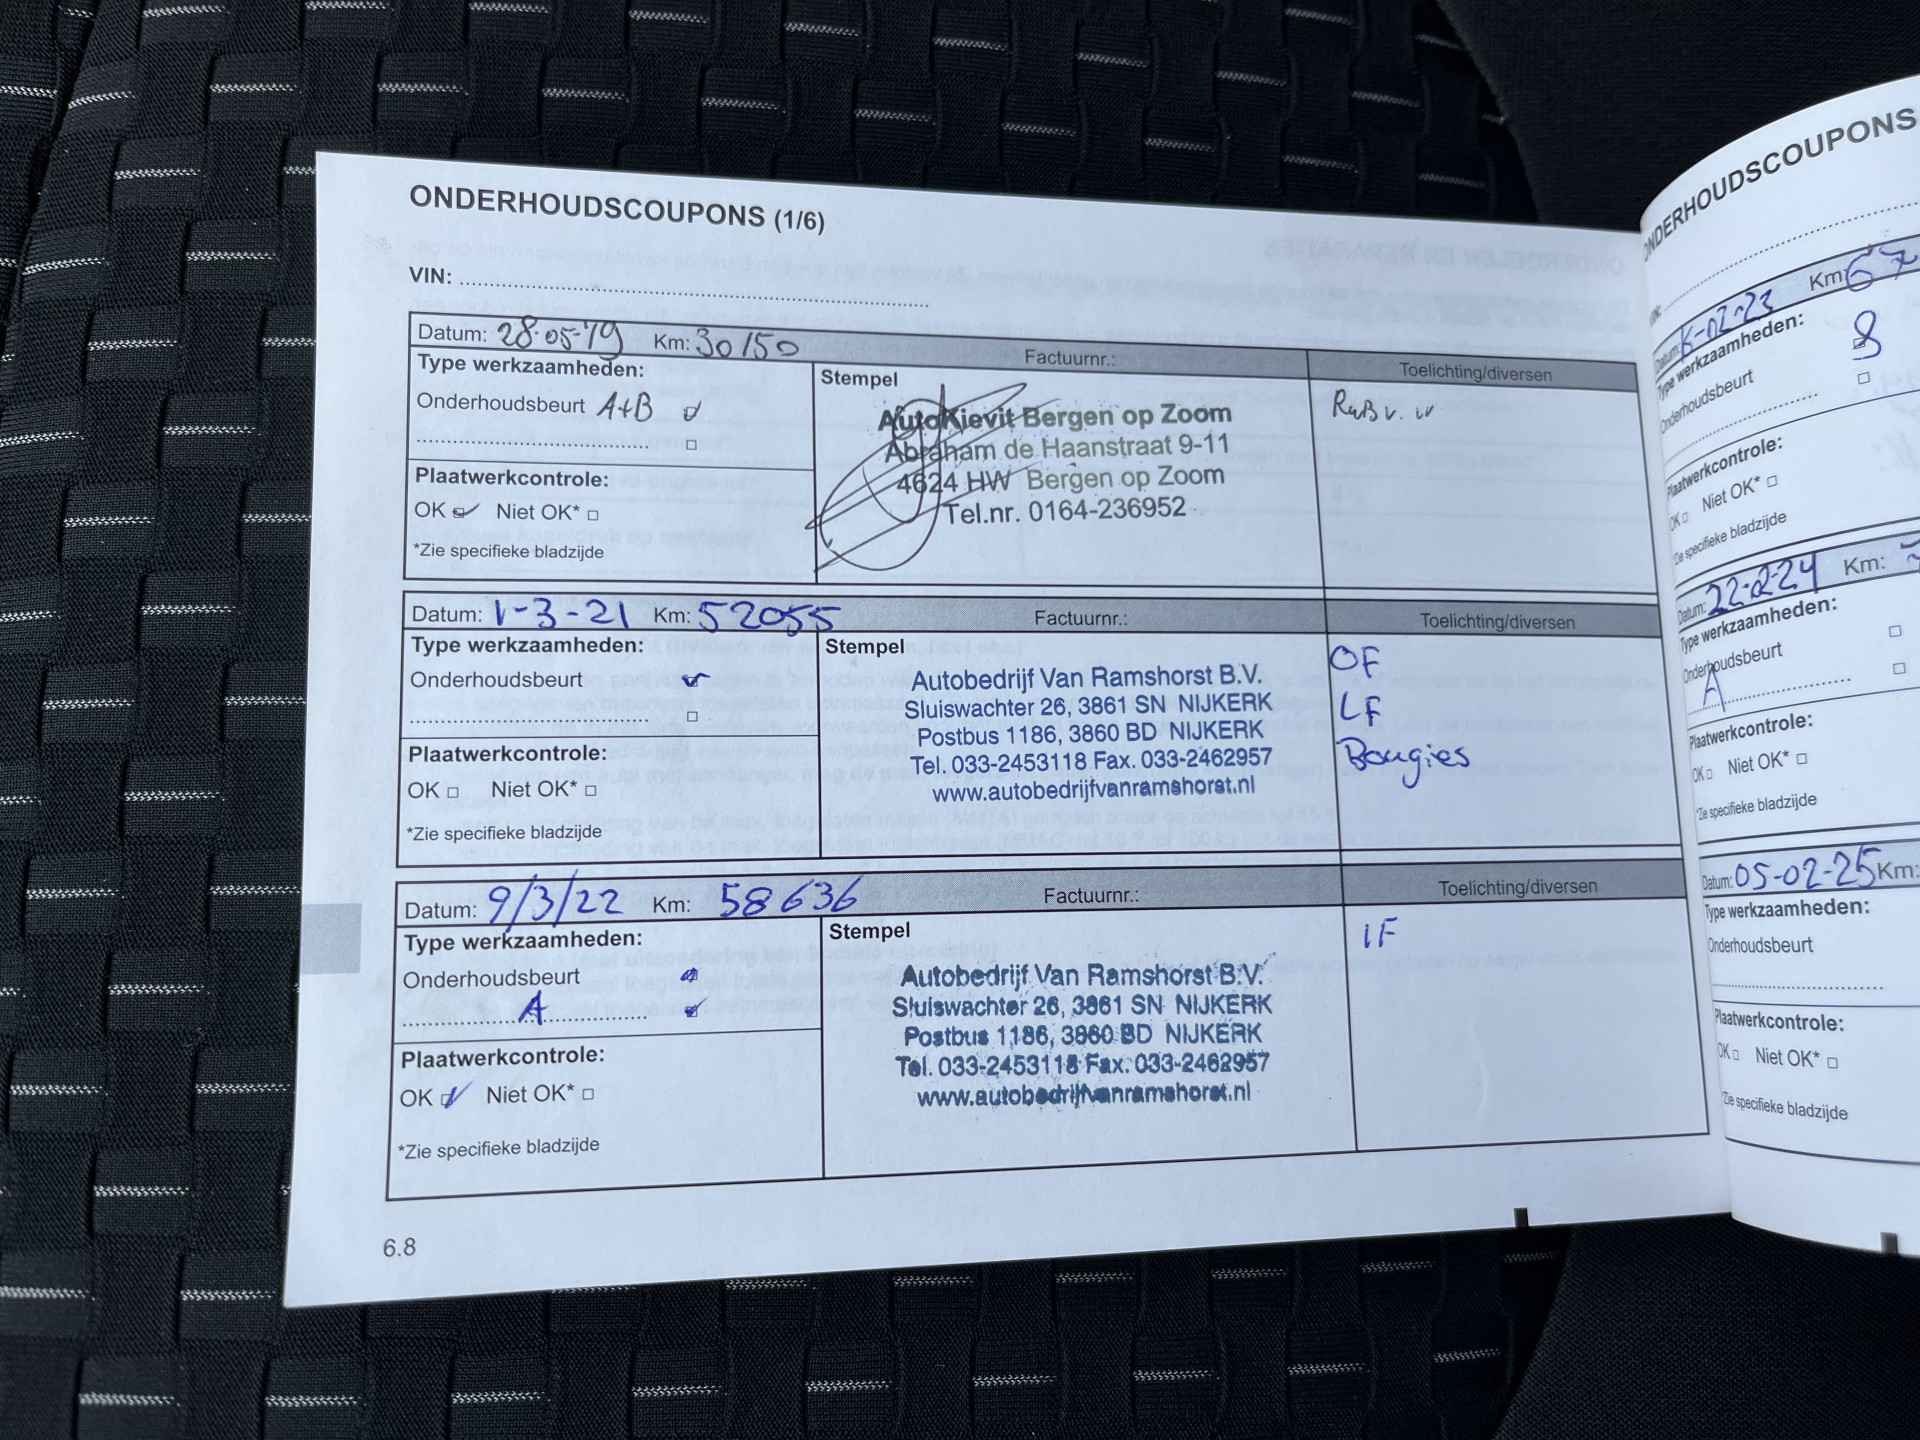 ONDERHOUDSCOUPONS (1/6)
VIN:
Datum: 28-05-19 Km: 30150 Factuurnr.: Toelichting/diversen
Type werkzaamheden:
Onderhoudsbeurt A+B
Plaatwerkcontrole:
OK Niet OK*
*Zie specifieke bladzijde
Stempel
AutoKievit Bergen op Zoom
Abraham de Haanstraat 9-11
4624 HW Bergen op Zoom
Tel.nr. 0164-236952
Datum: 1-3-21 Km: 52055 Factuurnr.: Toelichting/diversen
Type werkzaamheden:
Onderhoudsbeurt
Plaatwerkcontrole:
OK Niet OK*
*Zie specifieke bladzijde
Stempel
Autobedrijf Van Ramshorst B.V.
Sluiswachter 26, 3861 SN NIJKERK
Postbus 1186, 3860 BD NIJKERK
Tel. 033-2453118 Fax. 033-2462957
www.autobedrijfvanramshorst.nl
OF
LF
Bougies
Datum: 9/3/22 Km: 58636 Factuurnr.: Toelichting/diversen
Type werkzaamheden:
Onderhoudsbeurt
A
Plaatwerkcontrole:
OK Niet OK*
*Zie specifieke bladzijde
Stempel
Autobedrijf Van Ramshorst B.V.
Sluiswachter 26, 3861 SN NIJKERK
Postbus 1186, 3860 BD NIJKERK
Tel. 033-2453118 Fax. 033-2462957
www.autobedrijfvanramshorst.nl
IF
6.8
ONDERHOUDSCOUPONS
VIN:
Datum: Km: 67
Type werkzaamheden:
Onderhoudsbeurt
Plaatwerkcontrole:
OK Niet OK*
*Zie specifieke bladzijde
Datum: 22-2-24 Km:
Type werkzaamheden:
Onderhoudsbeurt
A
Plaatwerkcontrole:
OK Niet OK*
*Zie specifieke bladzijde
Datum: 05-02-25 Km:
Type werkzaamheden:
Onderhoudsbeurt
Plaatwerkcontrole:
OK Niet OK*
*Zie specifieke bladzijde